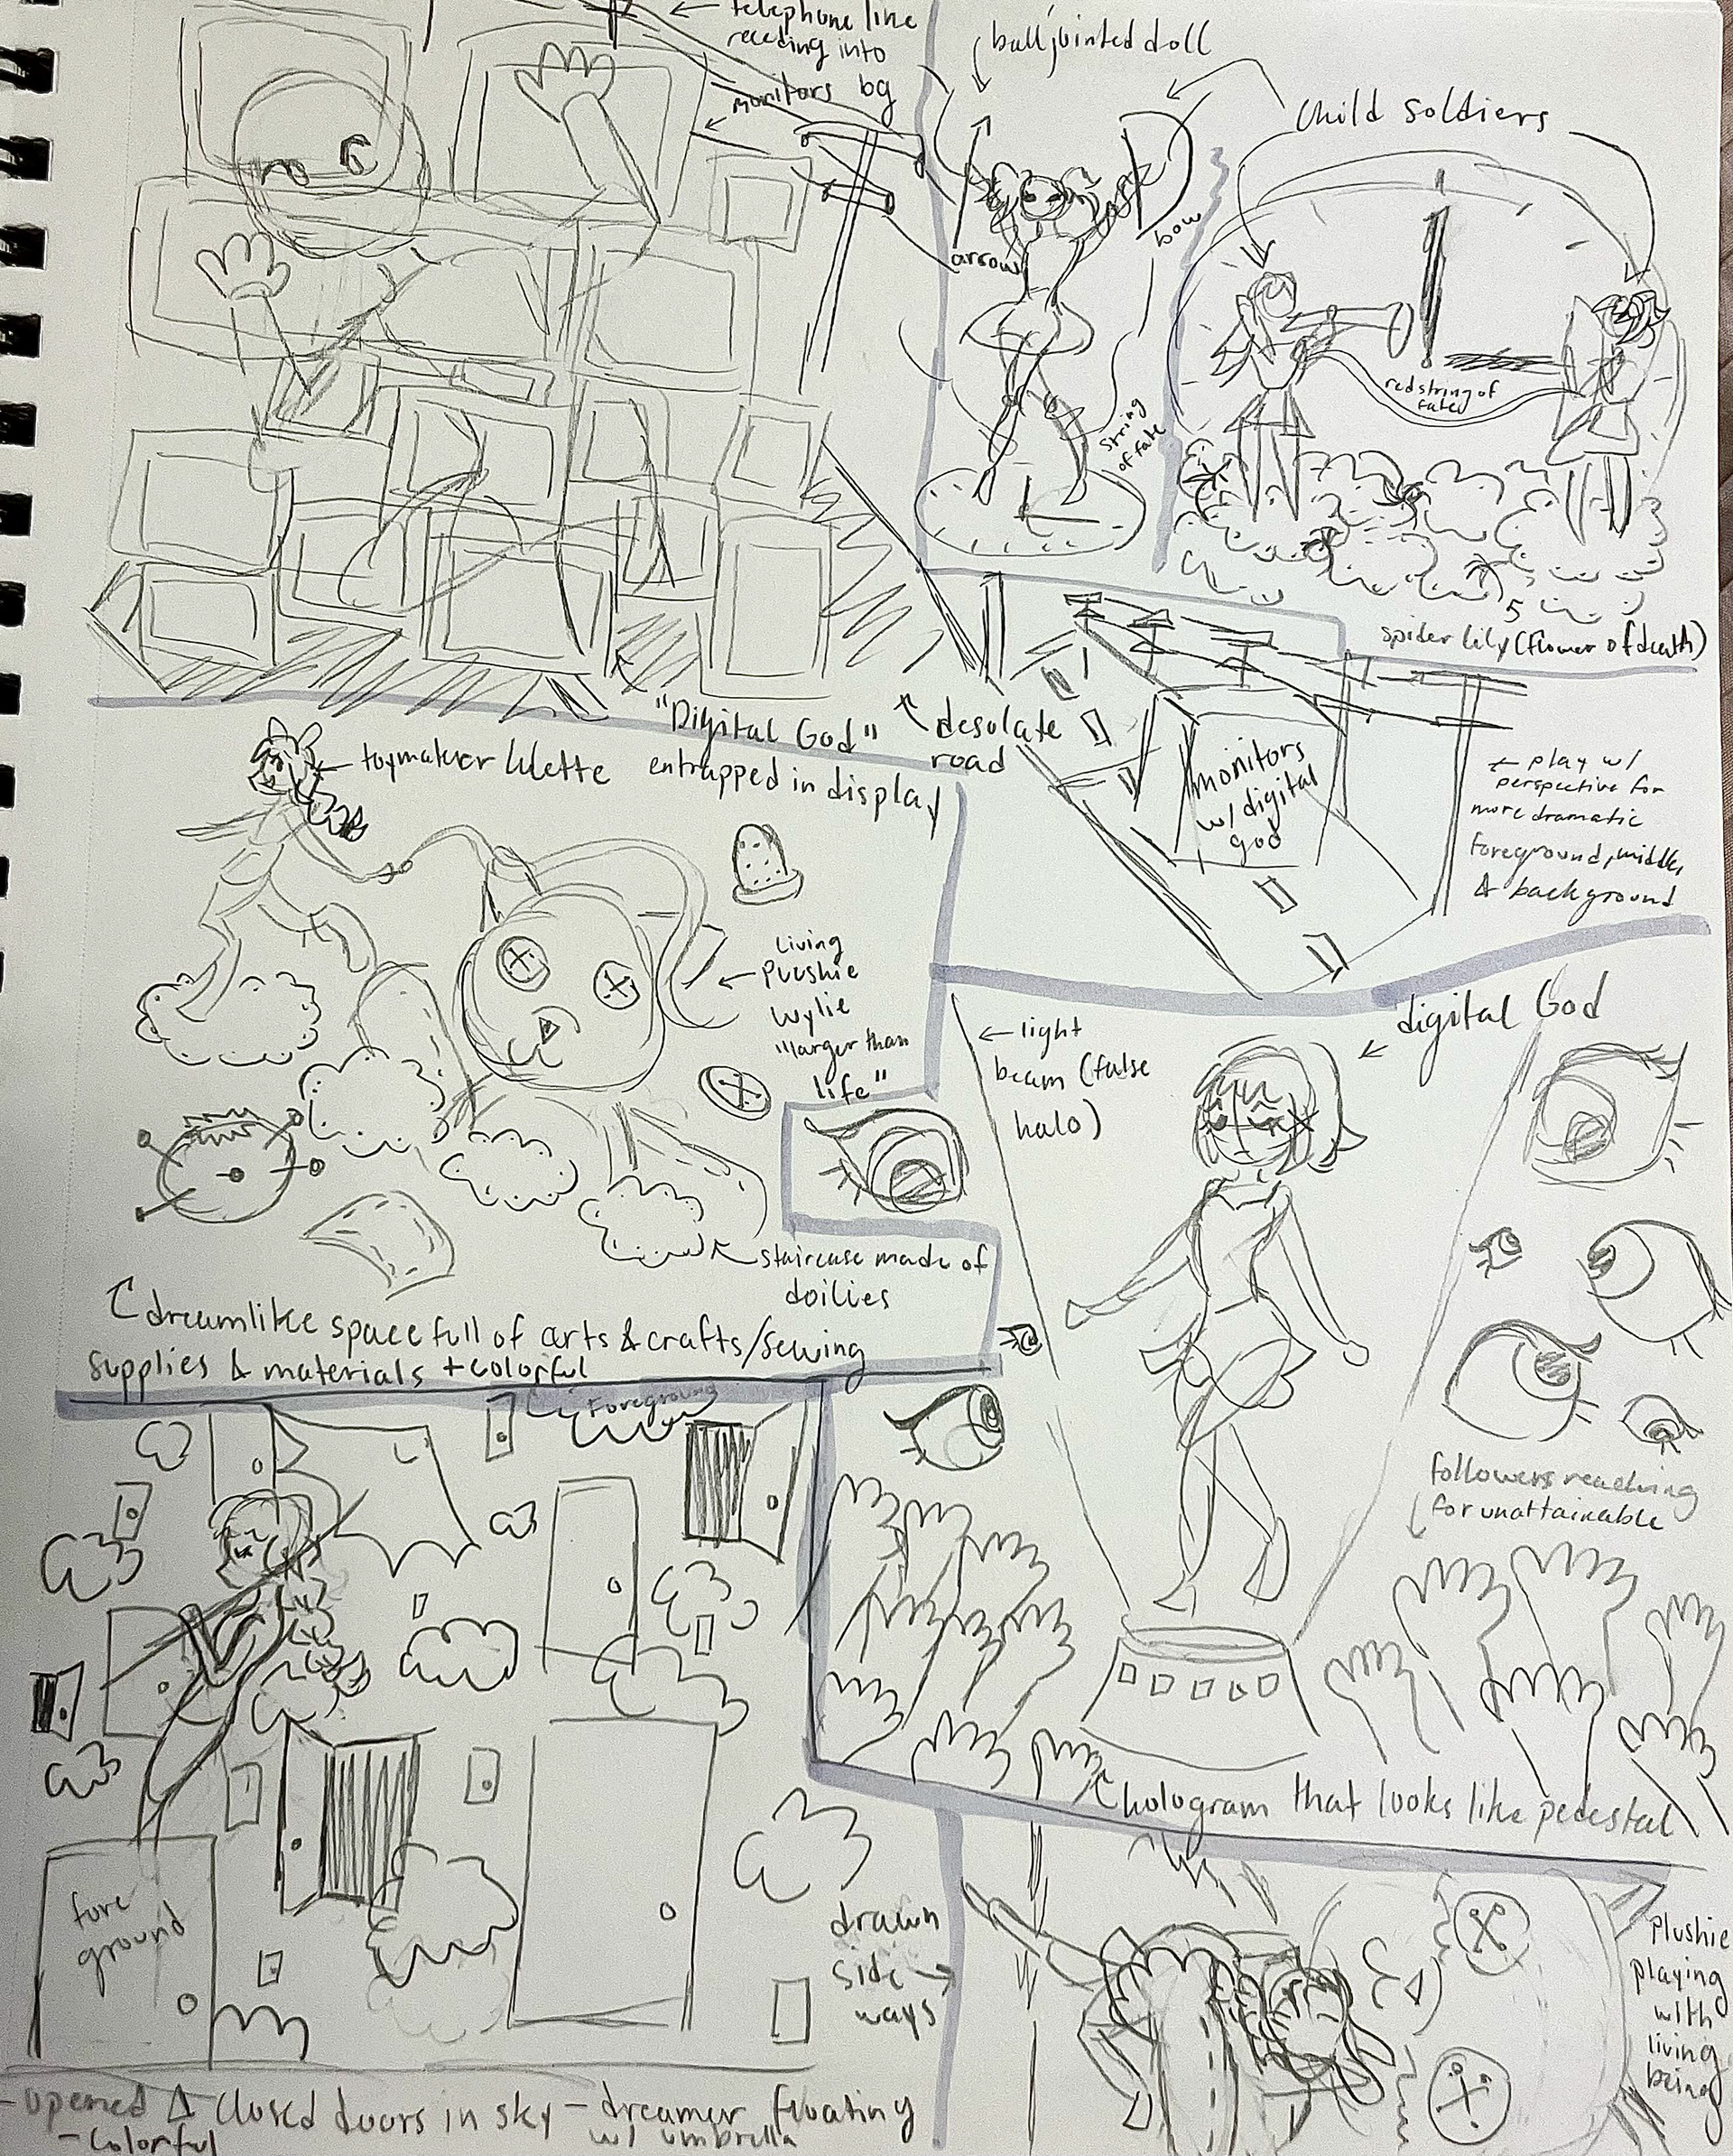 telephone line
receding into
monitors bg
ball jointed doll
child soldiers
arrow
bow
string
of fate
red string of
fate
spider lily (flower of death)
"Digital God"
entrapped in display
desolate
road
monitors
w/ digital
god
play w/
perspective for
more dramatic
foreground, middle,
& background
toymaker lilette
living
plushie
wylie
"larger than
life"
staircase made of
doilies
dreamlike space full of arts & crafts/sewing
supplies & materials + colorful
light
beam (false
halo)
digital God
followers reaching
for unattainable
hologram that looks like pedestal
Foreground
fore
ground
- opened & closed doors in sky - dreamer floating
w/ umbrella
- colorful
drawn
side
ways
plushie
playing
with
living
being